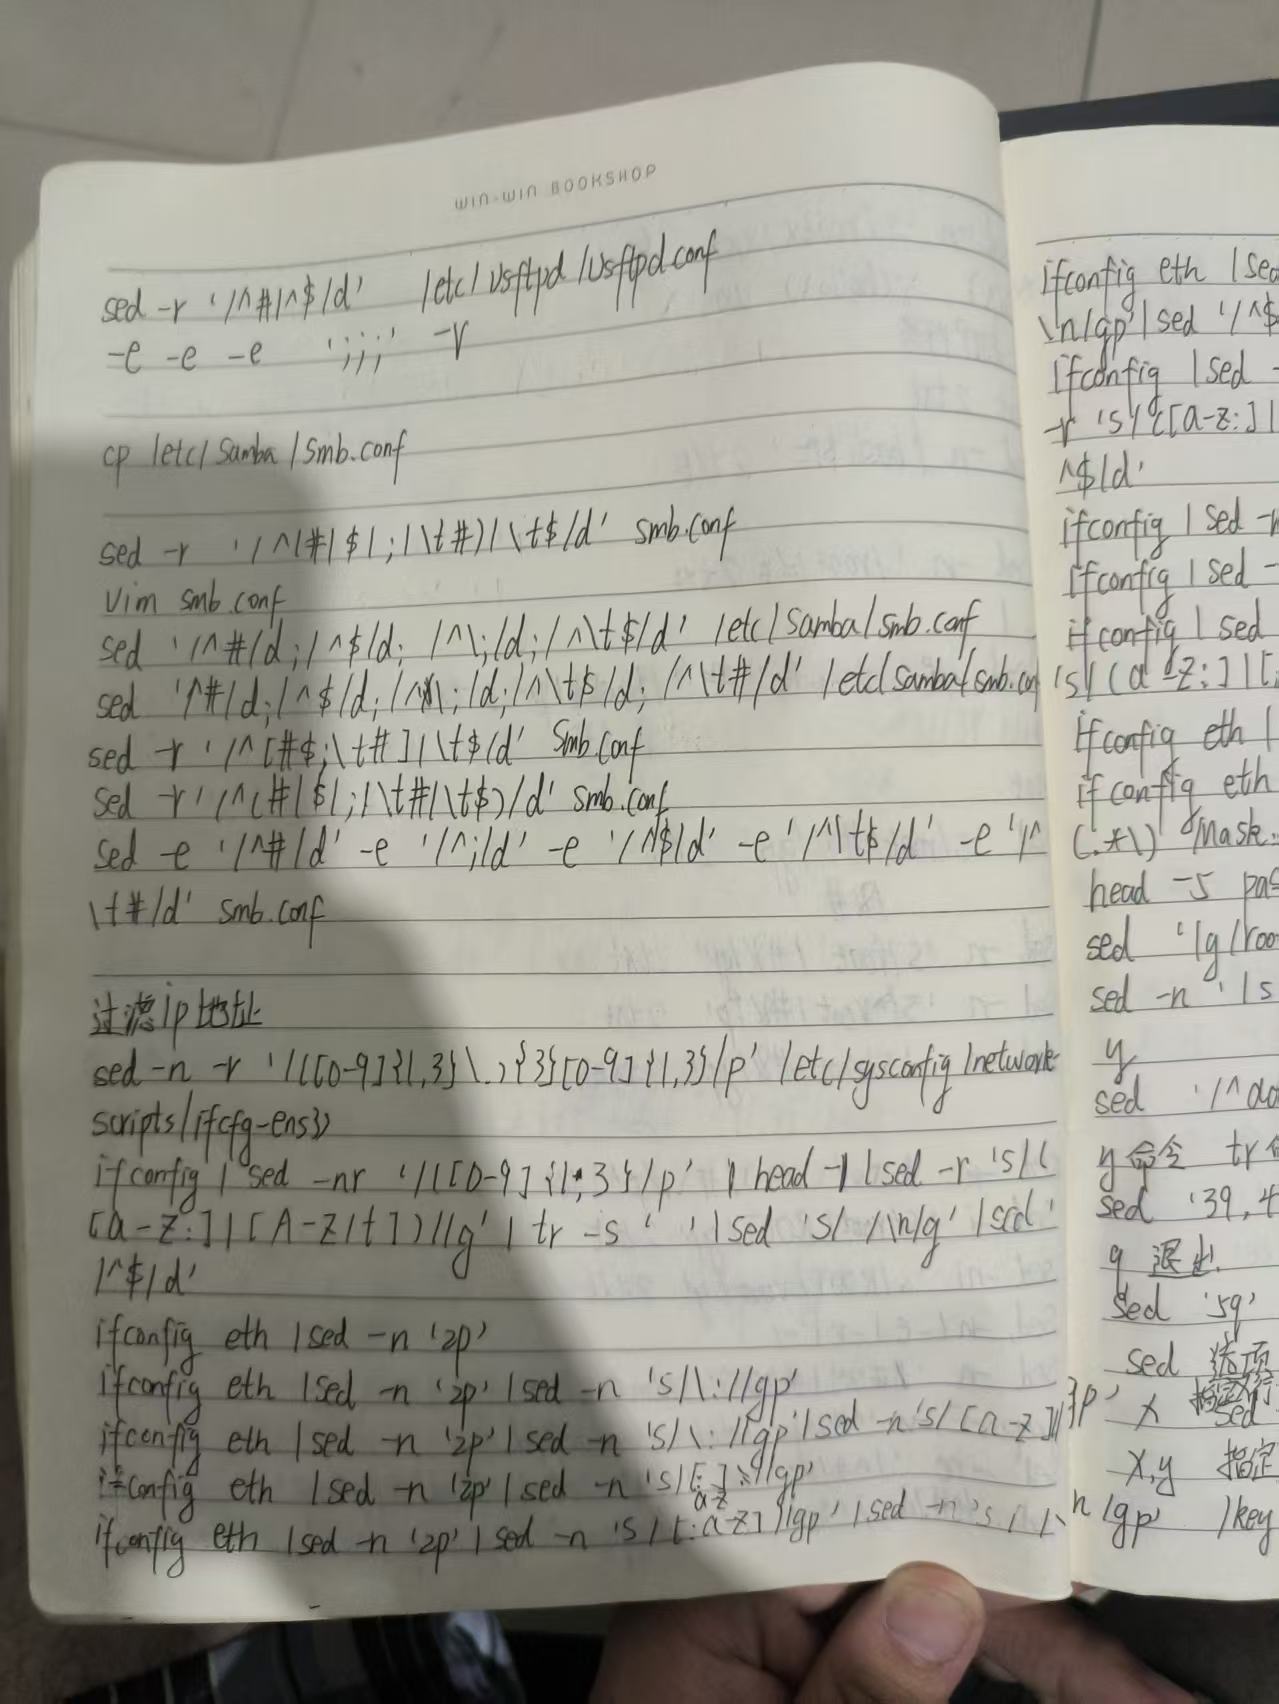 WIN-WIN BOOKSHOP
sed -r '/^#|^$/d' /etc/vsftpd/vsftpd.conf
-e -e -e ';;;' -r
cp /etc/samba/smb.conf
sed -r '/^(#|$|;|\t#)|\t$/d' smb.conf
vim smb.conf
sed '/^#/d;/^$/d; /^\;/d;/^\t$/d' /etc/samba/smb.conf
sed '/^#/d;/^$/d;/^\;/d;/^\t$/d; /^\t#/d' /etc/samba/smb.conf
sed -r '/^[#$;\t#]|\t$/d' smb.conf
sed -r '/^(#|$|;|\t#|\t$)/d' smb.conf
sed -e '/^#/d' -e '/^;/d' -e '/^$/d' -e '/^\t$/d' -e '/^
\t#/d' smb.conf
过滤ip地址
sed -n -r '/([0-9]{1,3}\.){3}[0-9]{1,3}/p' /etc/sysconfig/network-
scripts/ifcfg-ens33
ifconfig | sed -nr '/([0-9]{1,3}/p' | head -1 | sed -r 's/(
[a-z:]|[A-Z/t])//g' | tr -s ' ' | sed 's/ /\n/g' | sed '
/^$/d'
ifconfig eth | sed -n '2p'
ifconfig eth | sed -n '2p' | sed -n 's/\://gp'
ifconfig eth | sed -n '2p' | sed -n 's/\://gp' | sed -n 's/[a-z]//gp'
ifconfig eth | sed -n '2p' | sed -n 's/[:a-z]//gp'
ifconfig eth | sed -n '2p' | sed -n 's/[:a-z]//gp' | sed -n 's/ /\n/gp'
ifconfig eth | sed
\n/gp' | sed '/^$
ifconfig | sed -
-r 's/([a-z:]|
^$/d'
ifconfig | sed -n
ifconfig | sed -
ifconfig | sed
's/(a-z:]|[
ifconfig eth |
ifconfig eth
(.*\) Mask
head -5 pas
sed '/g/roo
sed -n '/s
y
sed '/^do
y命令 tr
sed '39,4
q 退出
sed '5q'
sed 选项
x 指定行 sed
x,y 指定
/key